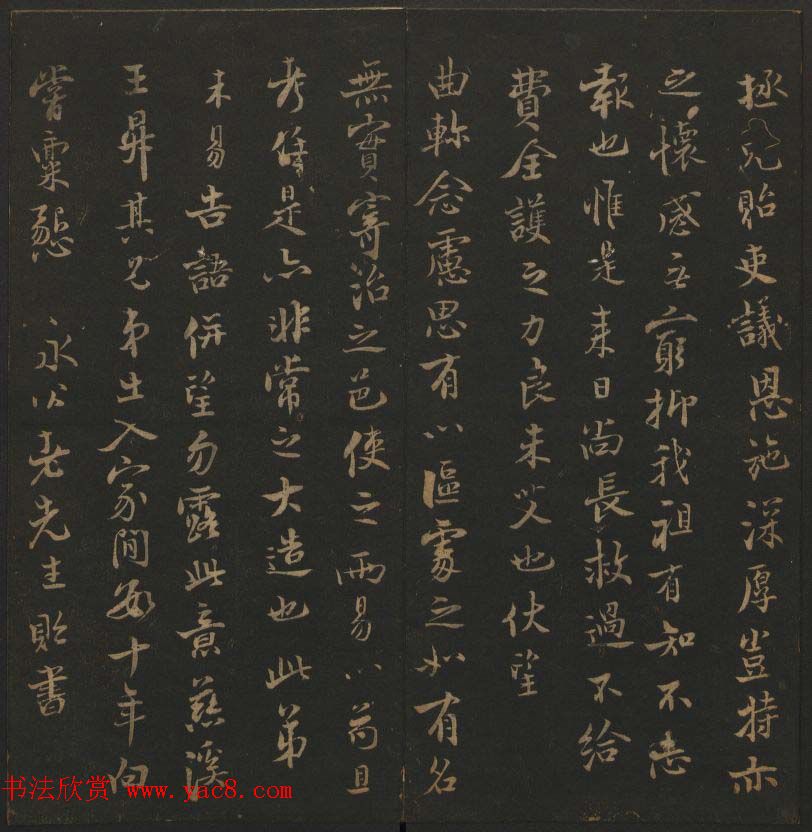 拯兒貽吏議恩施深厚豈特亦
之懷感無窮抑我祖有知不忘
報也惟是來日尚長救過不給
費全護之力良未艾也伏望
曲軫念慮思有以區處之如有名
無實寄治之邑使之兩易以苟且
考是亦非常之大造也此第
未易告語併望勿露此意慈溪
王昇其兄弟出入家間每十年向
嘗稟懇 永公老先生貽書
书法欣赏 www.yac8.com